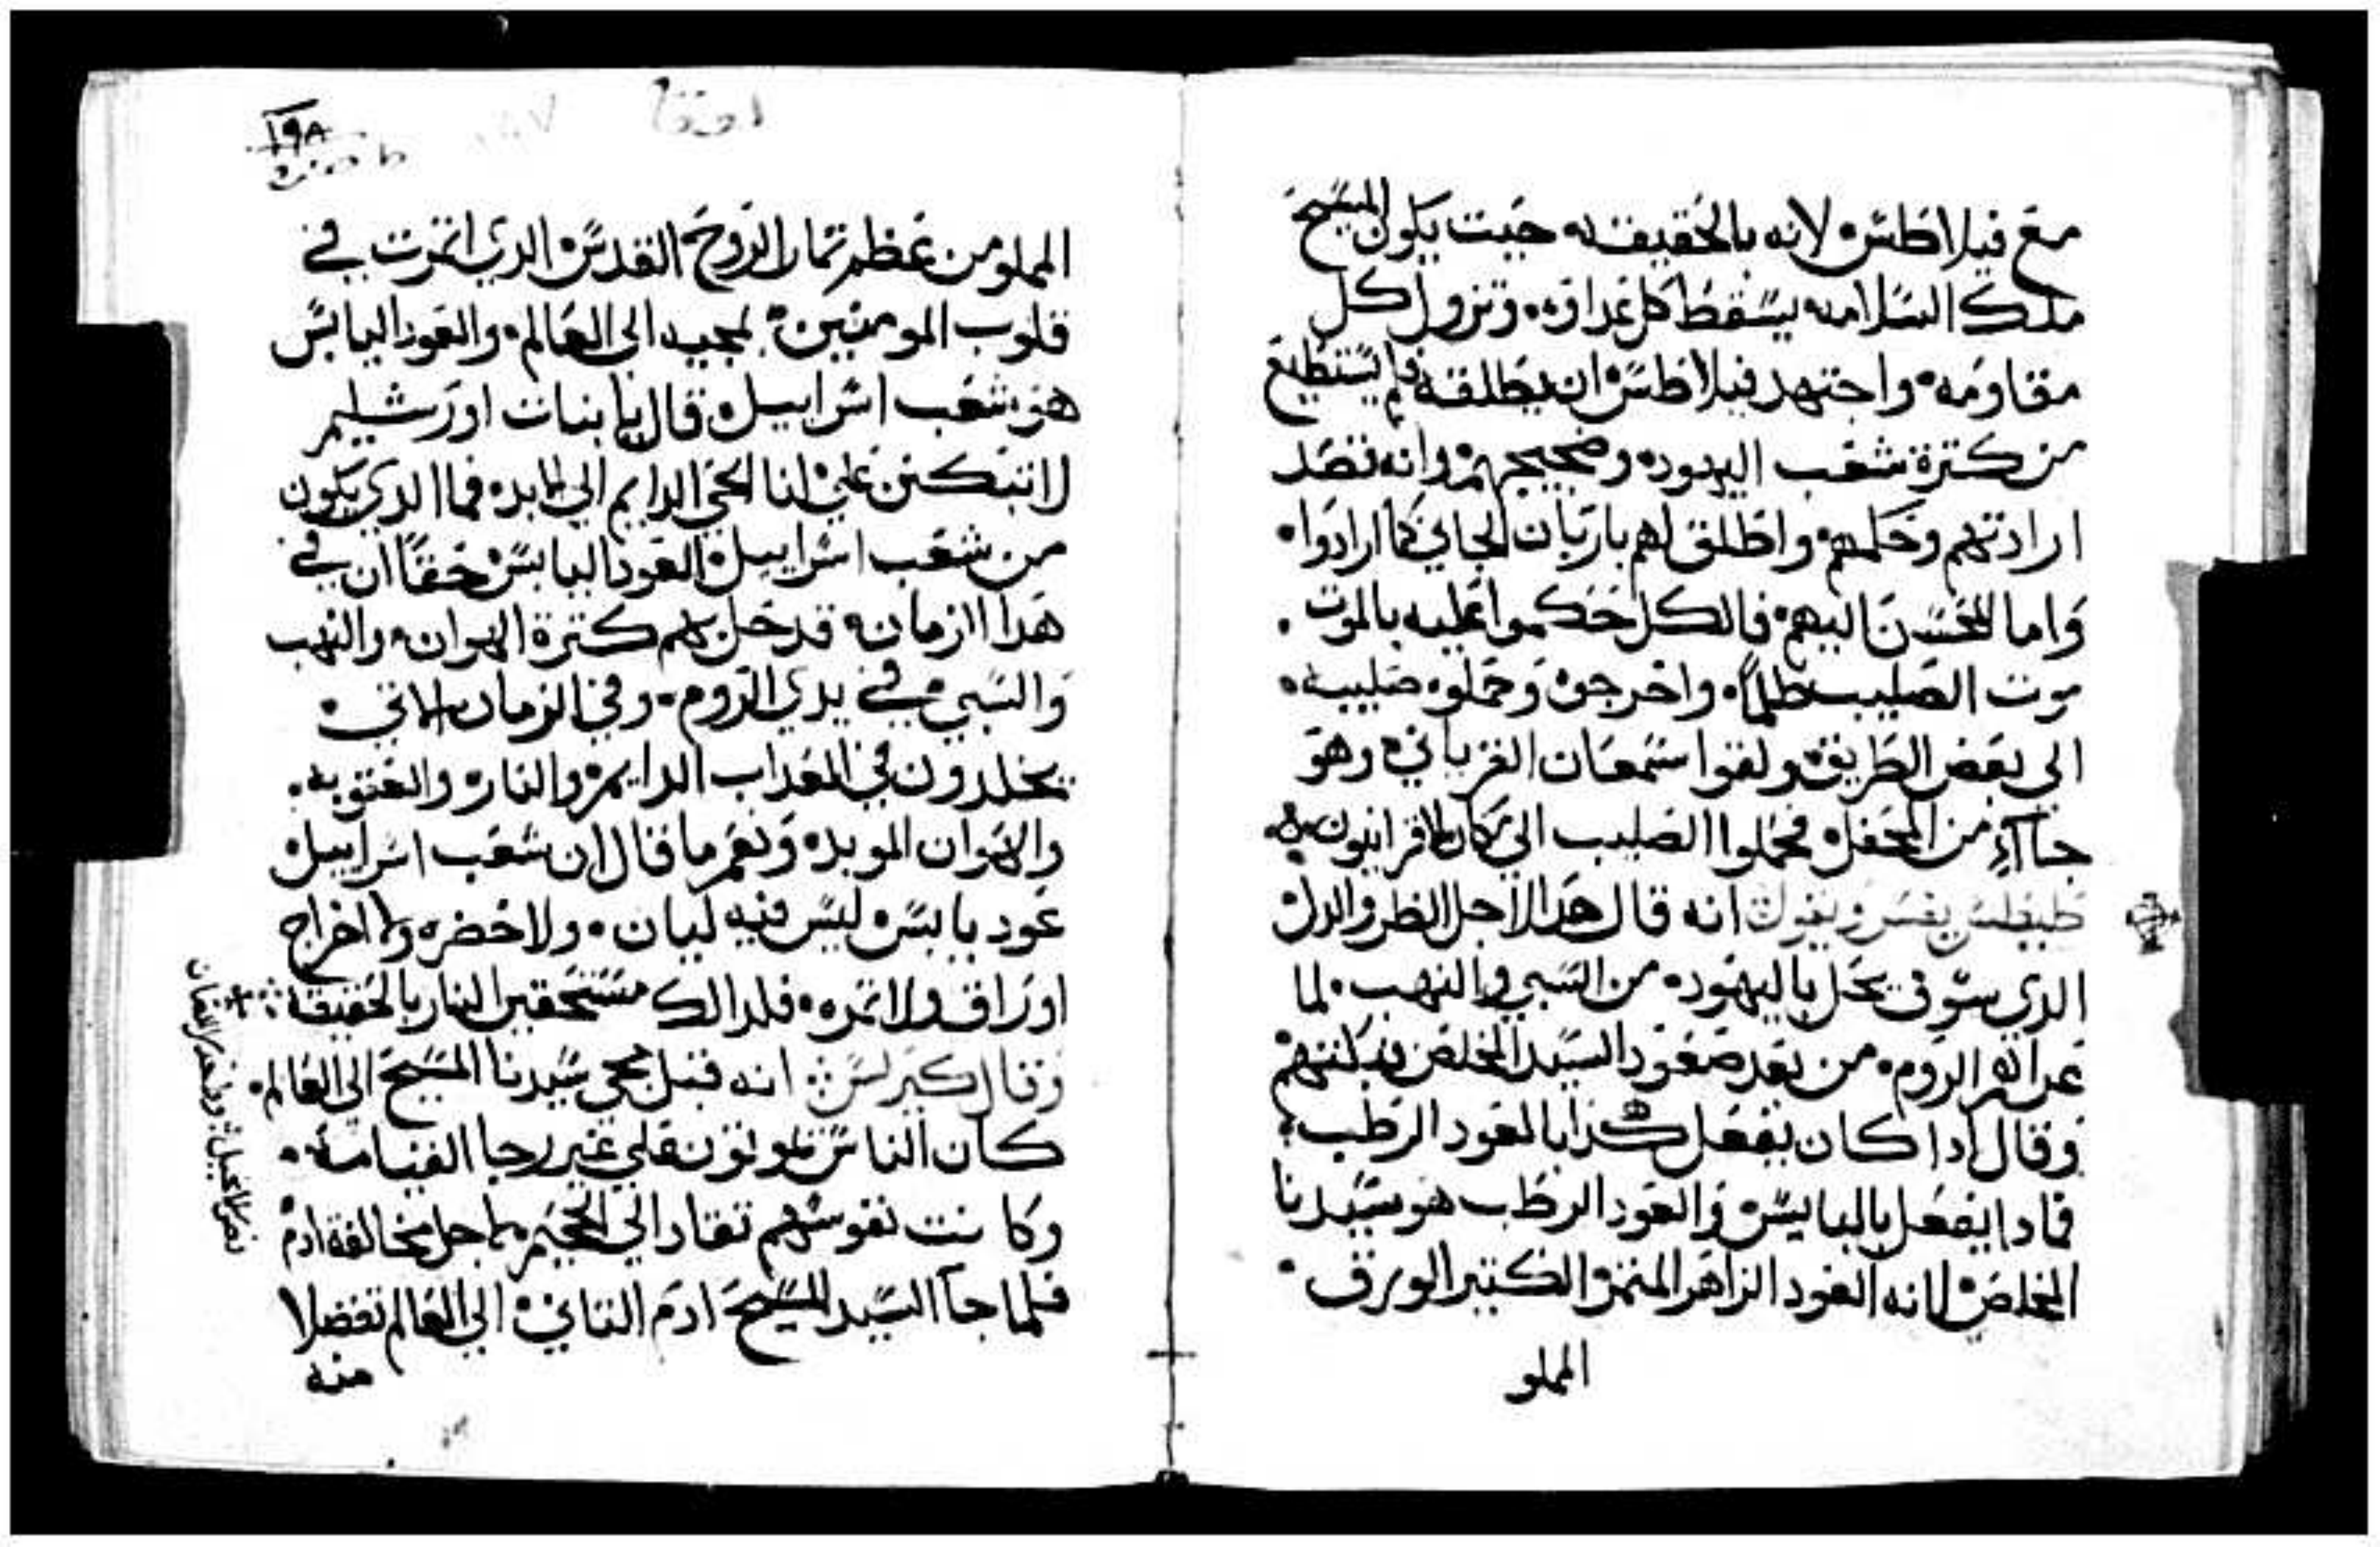 مع فيلاطس لانه بالحقيقه حيت يكون المسيح
ملك السلامه يسقط كل عداوه وتزول كل
مقاومه واجتهد فيلاطس ان يطلقه فلم يستطيع
من كترة شعب اليهود وضجيجهم وانه تقصد
ارادتهم وحكمهم واطلق لهم بارتبان الجاني كما ارادوا
واما المحسن اليهم فالكل حكموا عليه بالموت
موت الصليب ظلماً واخرجوه وحملوه صليبه
الي بعض الطريق ولقوا سمعان القرياني وهو
جاآء من الحقل فحملوا الصليب الي مكان الاقرانيون
طيطس يفسر ويقول انه قال هدا لاجل الظر والدل
الدي سوف يحل باليهود من السبي والنهب لما
غزاهم الروم من بعد صعود السيد المخلص فبكتهم
وقال ادا كان يفعل كدا بالعود الرطب
فمادا يفعل باليابس والعود الرطب هو سيدنا
المخلص لانه العود الزاهر المتمر الكتير الورق
المملو
لوقا
١٩٨
المملو من عظم تمار الروح القدس الدي اتمرت في
قلوب المومنين بمجييه الي العالم والعود اليابس
هو شعب اسراييل قال يا بنات اورشليم
لا تبكين علي انا الحي الدايم الي الابد فما الدي يكون
من شعب اسراييل العود اليابس حقاً ان في
هدا الزمان قد حل بهم كترة الهوان والنهب
والسبي في يدي الروم وفي الزمان الاتي
يخلدون في العداب الدايم والنار والعقوبه
والهوان الموبد ونعم ما قال ان شعب اسراييل
عود يابس ليس فيه ليان ولا خضره ولا اخراج
اوراق ولا تمره فلدالك مستحقين النار بالحقيقه
وقال كيرلس انه قبل مجي سيدنا المسيح الي العالم
كان الناس يموتون علي غير رجا القيامه
وكانت نفوسهم تقاد الي الجحيم لاجل مخالفة ادم
فلما جآ السيد المسيح ادم التاني الي العالم تفضلا
منه